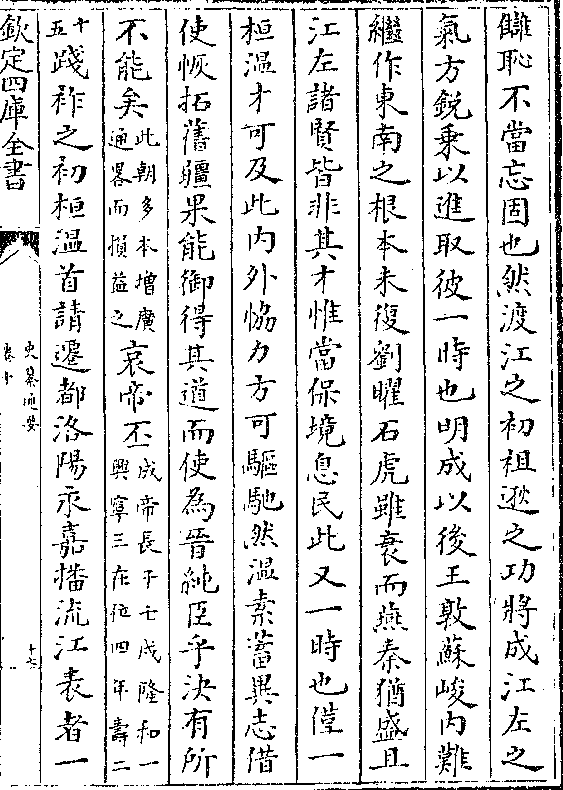 讎恥不當忘固也然渡江之初祖逖之功將成江左之
氣方銳乗以進取彼一時也明成以後王敦蘇峻内難
繼作東南之根本未復劉曜石虎雖衰而燕秦猶盛且
江左諸賢皆非其才惟當保境息民此又一時也僅一
桓温才可及此内外恊力方可驅馳然温素蓄異志借
使恢拓舊疆果能御得其道而使為晉純臣乎決有所
不能矣此朝多本增廣通畧而損益之哀帝丕成帝長子壬戌隆和一興寧三在位四年壽二
十五踐祚之初桓温首請遷都洛陽永嘉播流江表者一
欽定四庫全書
史纂通要
卷十